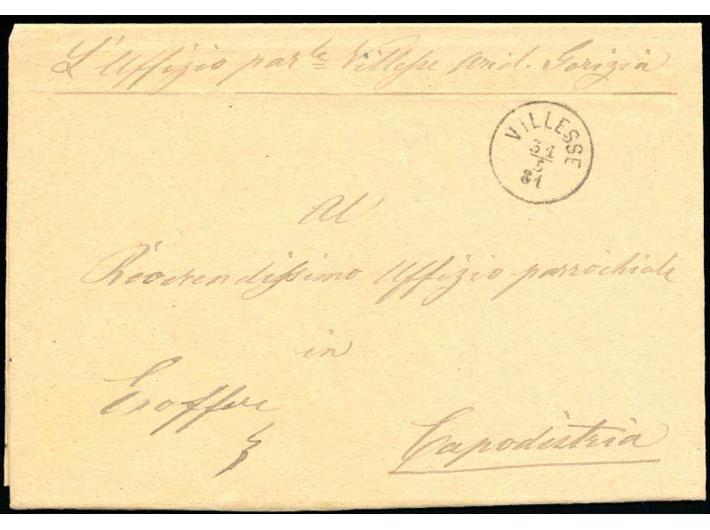 L'Uffizio par.le Villesse Arcid. Gorizia
VILLESSE
31
5
81
Al'
Reverendissimo Uffizio parrochiale
in
Ex offo
Capodistria